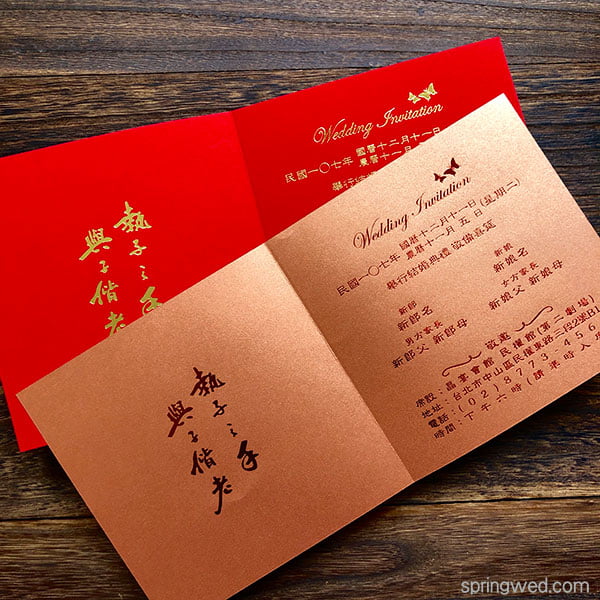 執子之手
與子偕老
Wedding Invitation
國曆十二月十一日
民國一〇七年 農曆十一月
舉行結
執子之手
與子偕老
Wedding Invitation
國曆十二月十一日
民國一〇七年 農曆十一月五日(星期二)
舉行結婚典禮 敬備喜筵
新郎 新娘
新郎名 新娘名
男方家長 女方家長
新郎父 新郎母 新娘父 新娘母
敬邀
席設：晶宴會館 民權館(第二劇場)
地址：台北市中山區民權東路三段2號B1
電話：(02)8773-456
時間：下午六時(請準時入席
springwed.com